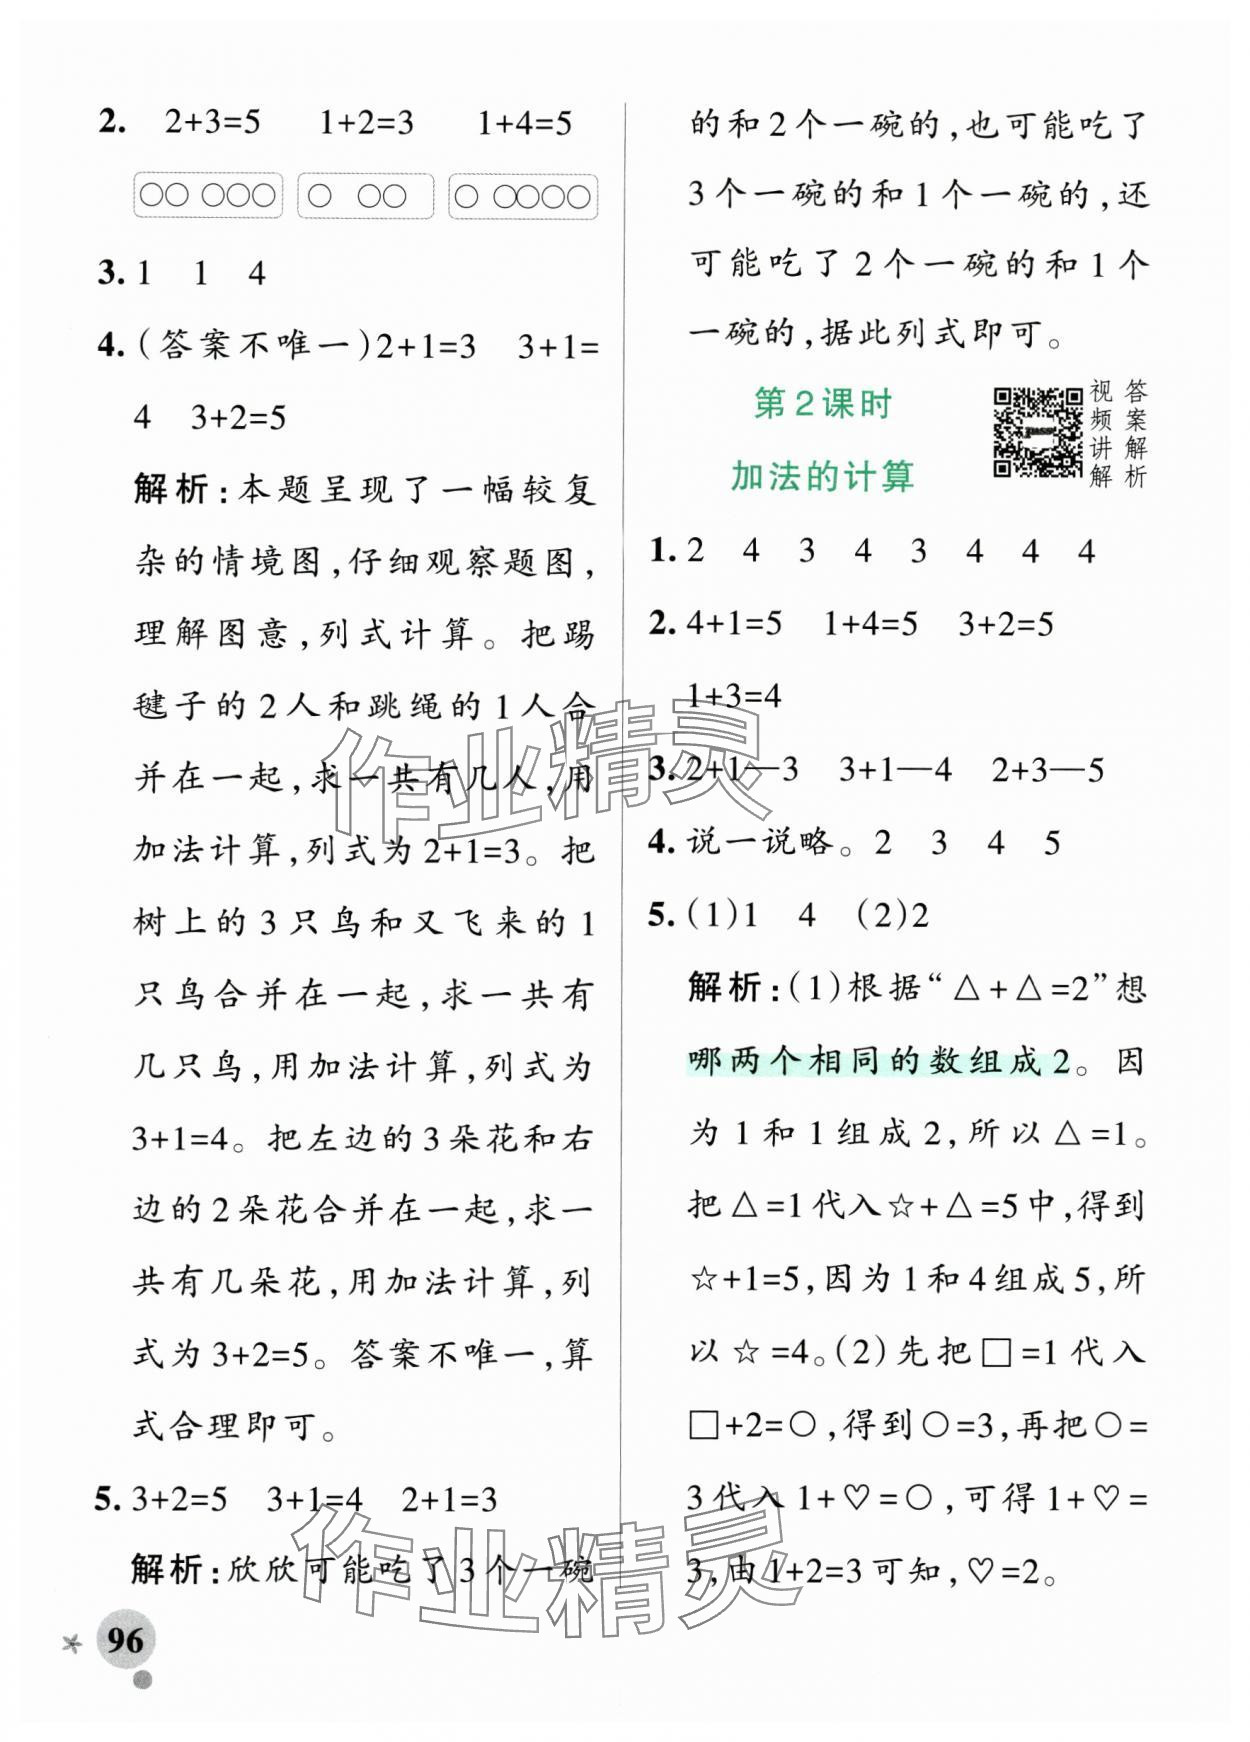 2. 2+3=5 1+2=3 1+4=5
○○ ○○○ ○ ○○ ○ ○○○○
3. 1 1 4
4. (答案不唯一)2+1=3 3+1=
4 3+2=5
解析:本题呈现了一幅较复
杂的情境图,仔细观察题图,
理解图意,列式计算。把踢
毽子的2人和跳绳的1人合
并在一起,求一共有几人,用
加法计算,列式为2+1=3。把
树上的3只鸟和又飞来的1
只鸟合并在一起,求一共有
几只鸟,用加法计算,列式为
3+1=4。把左边的3朵花和右
边的2朵花合并在一起,求一
共有几朵花,用加法计算,列
式为3+2=5。答案不唯一,算
式合理即可。
5. 3+2=5 3+1=4 2+1=3
解析:欣欣可能吃了3个一碗
96
的和2个一碗的,也可能吃了
3个一碗的和1个一碗的,还
可能吃了2个一碗的和1个
一碗的,据此列式即可。
第2课时
加法的计算
视频讲解
答案解析
1. 2 4 3 4 3 4 4 4
2. 4+1=5 1+4=5 3+2=5
1+3=4
3. 2+1—3 3+1—4 2+3—5
4. 说一说略。2 3 4 5
5. (1)1 4 (2)2
解析:(1)根据“△+△=2”想
哪两个相同的数组成2。因
为1和1组成2,所以△=1。
把△=1代入☆+△=5中,得到
☆+1=5,因为1和4组成5,所
以☆=4。(2)先把□=1代入
□+2=○,得到○=3,再把○=
3代入1+♡=○,可得1+♡=
3,由1+2=3可知,♡=2。
作业精灵
作业精灵